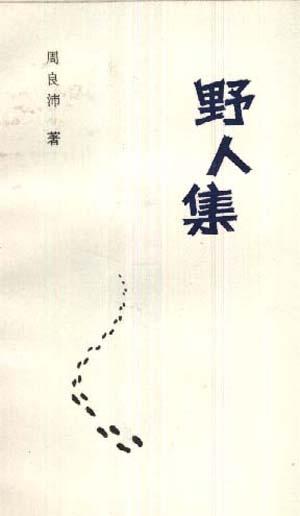 野人集
周良沛 著